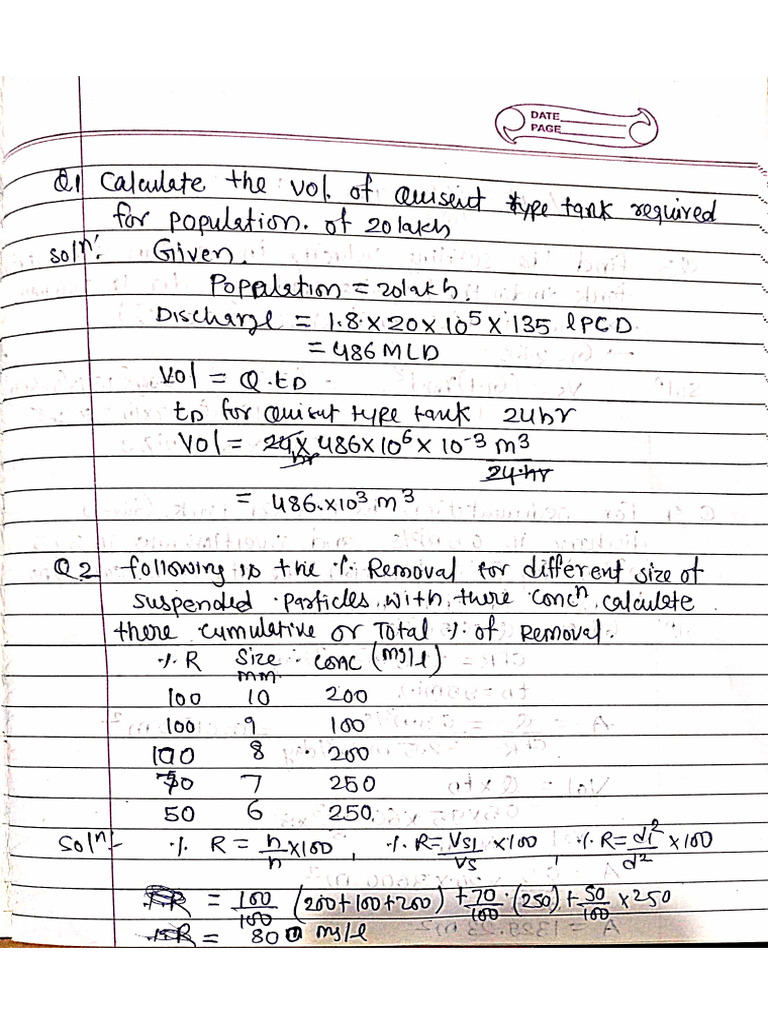 DATE
PAGE
Q1 Calculate the vol. of Quisent type tank required
for population. of 20 lakh
Soln:. Given.
Population = 20 lakh.
Discharge = 1.8 × 20 × 10^5 × 135 lPCD
= 486 MLD
Vol = Q.tD
tD for Quisut type tank 24hr
Vol = 24 hr × 486×10^6 × 10^-3 m3 / 24.hr
= 486.×10^3 m^3
Q2 following is the % Removal for different size of
suspended particles, with, there conc^n, calculate
there cumulative or Total % of Removal.
% R Size mm. conc (mg/l)
100 10 200
100 9 100
100 8 200
70 7 250
50 6 250.
Soln:- % R = h/h ×100, % R = Vs1/Vs ×100 % R = d1^2/d^2 ×100
%R = 100/100 (200+100+200) + 70/100 (250) + 50/100 × 250
%R = 800 mg/l